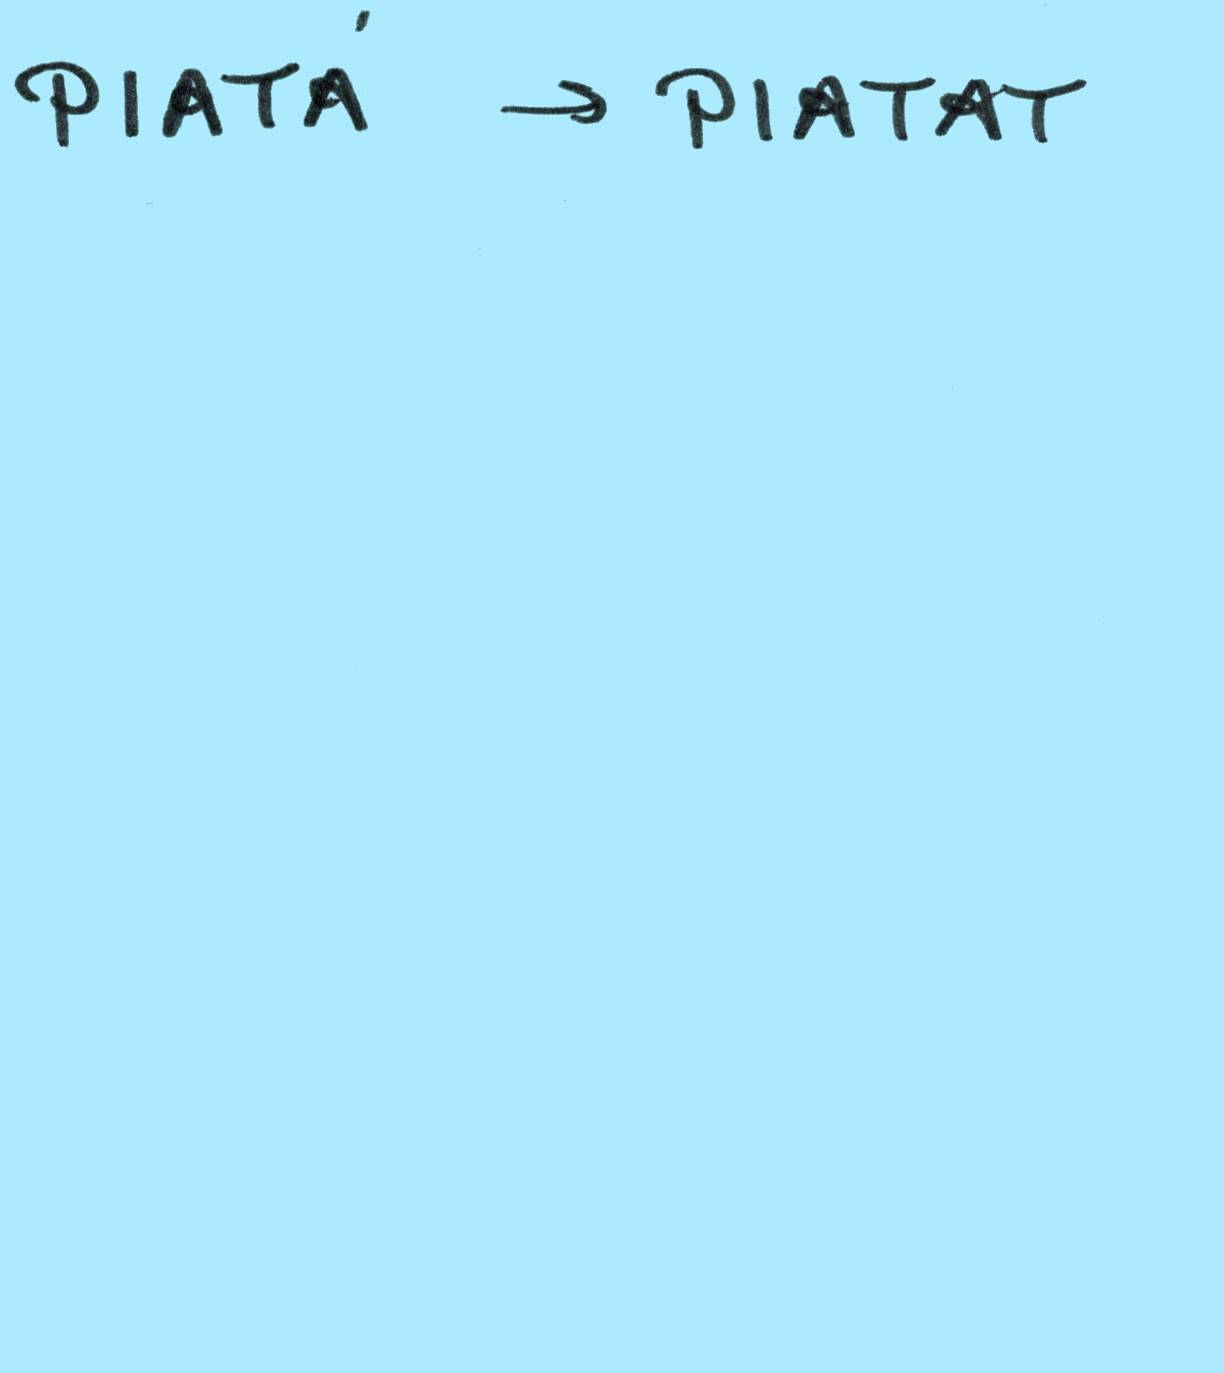 PIATÁ → PIATAT